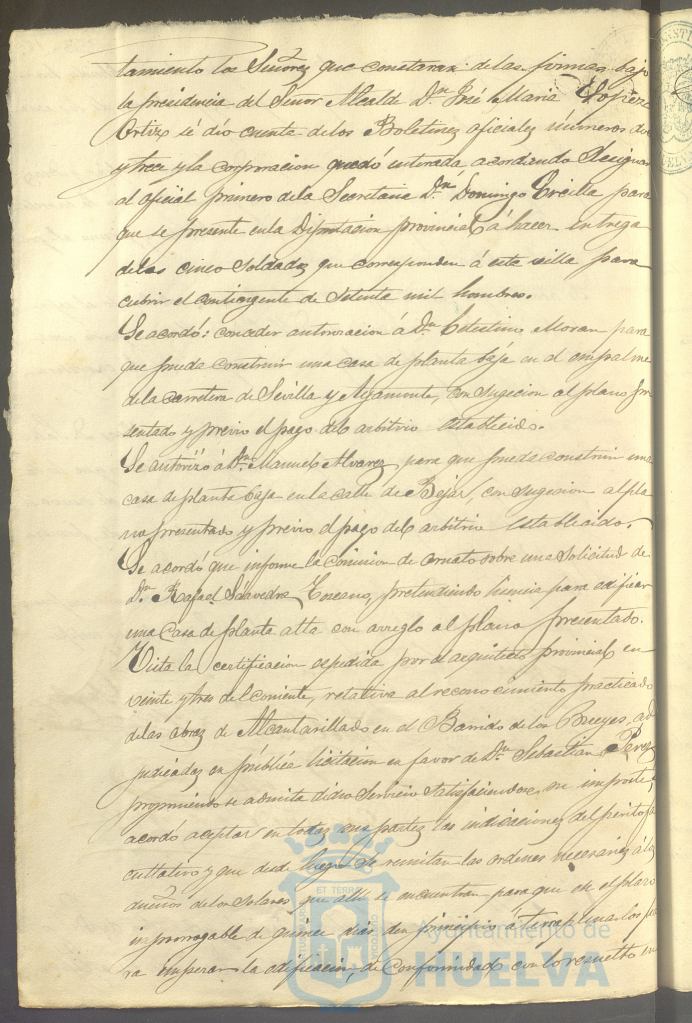 tamiento los Señores que constaran de las firmas bajo
la presidencia del Señor Alcalde Dn. José Maria Lopez
Ortiz se dio cuenta de los Boletines oficiales números dos
y trece y la corporacion quedó enterada acordando designar
al oficial primero de la Secretaria Dn. Domingo Ercilla para
que se presente en la Diputacion provincial á hacer entrega
de los cinco soldados que corresponden á esta villa para
cubrir el contingente de setenta mil hombres.
Se acordó: conceder autorizacion á Dn. Celestino Moran para
que pueda construir una casa de planta baja en el empalme
de la carretera de Sevilla y Ayamonte, con sugecion al plano pre
sentado y previo el pago del arbitrio establecido.
Se autorizó á Dn. Manuel Alvarez para que pueda construir una
casa de planta baja en la calle de Bejar, con sugecion al pla
no presentado y previo el pago del arbitrio establecido.
Se acordó que informe la comision de ornato sobre una solicitud de
Dn. Rafael Saavedra pretendiendo licencia para edificar
una casa de planta alta con arreglo al plano presentado.
Vista la certificacion espedida por el arquitecto provincial en
veinte y tres del corriente, relativa al reconocimiento practicado
de las obras de Alcantarillado en el Barrido de los Bueyes, ad
judicadas en pública licitacion en favor de Dn. Sebastian Perez
proponiendo se admita dicho servicio satisfaciendose su importe, se
acordó aceptar en todas sus partes las indicaciones del perito fa
cultativo y que desde luego se remitan las ordenes necesarias á los
dueños de los solares que alli se encuentran para que en el plazo
improrogable de quince dias den principio á terraplenarlos pa
ra empezar la edificacion, de conformidad con lo resuelto en
ET TERRAE
Ayuntamiento de
HUELVA